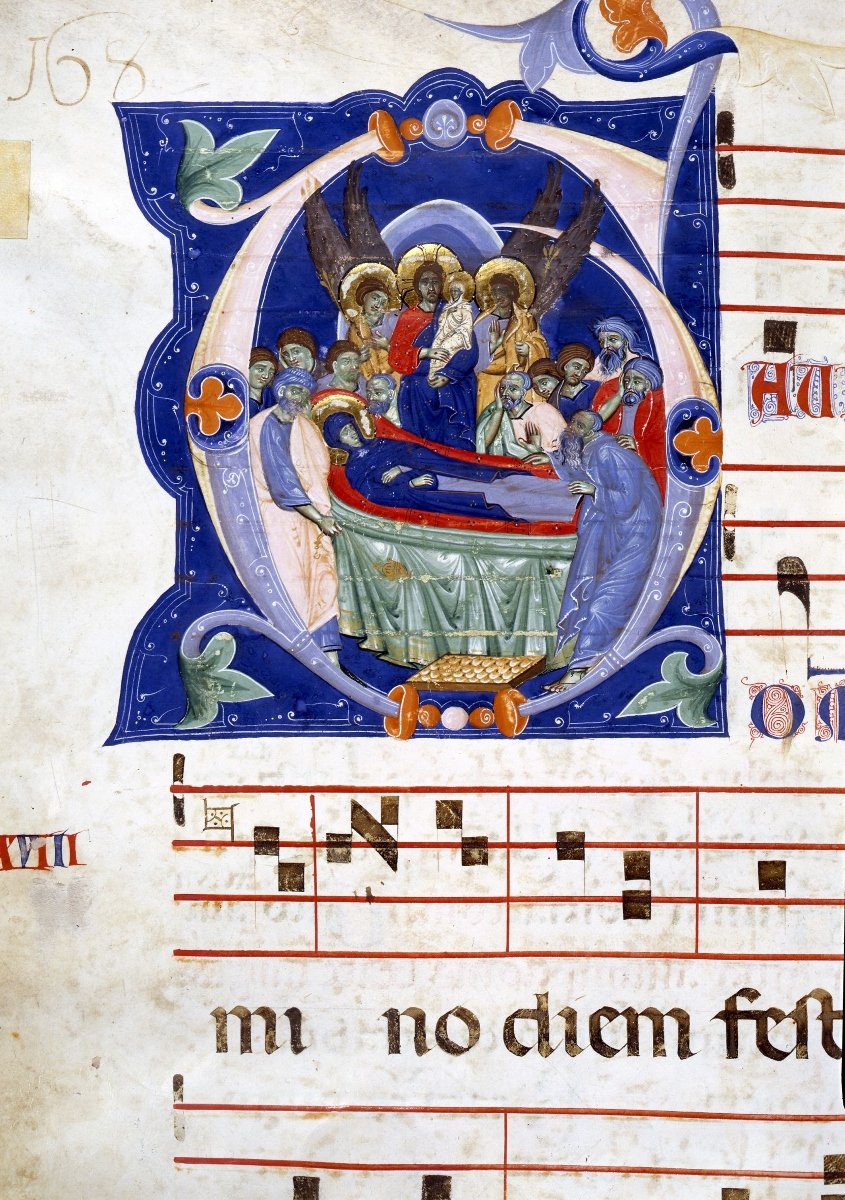 168
AU
OM
XVIII
mi no diem fest